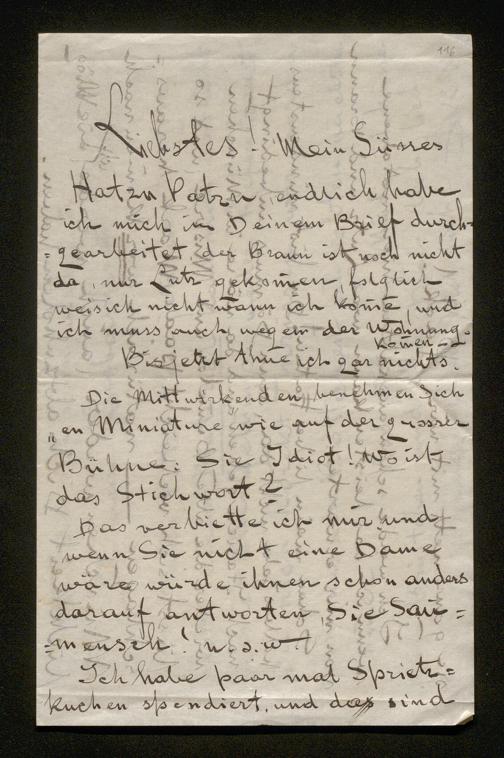 116
Liebstes! Mein Süsses
Hatzn Patzn, endlich habe
ich mich in Deinem Brief durch-
=gearbeitet der Braun ist noch nicht
da, nur Lutz gekom̅en, folglich
weis ich nicht wann ich kom̅e, und
ich muss auch wegen der Wohnung-
kom̅en-
Bis jetzt thue ich gar nichts.
Die Mittwirkenden, benehmen sich
"en Miniature" wie auf der grossen
Bühne: Sie Idiot! Wo ist
das Stichwort?
Das verbiette ich mir und
wenn Sie nicht eine Dame
wäre würde ihnen schon anders
darauf antworten, Sie Sau=
=mensch! u.s.w.
Ich habe paar mal Spritz=
kuchen spendiert, und das sind